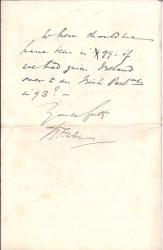 Where should we
have been in '99 if
we had given Ireland
over to an Irish Parl
in 93? -
Yours faithf